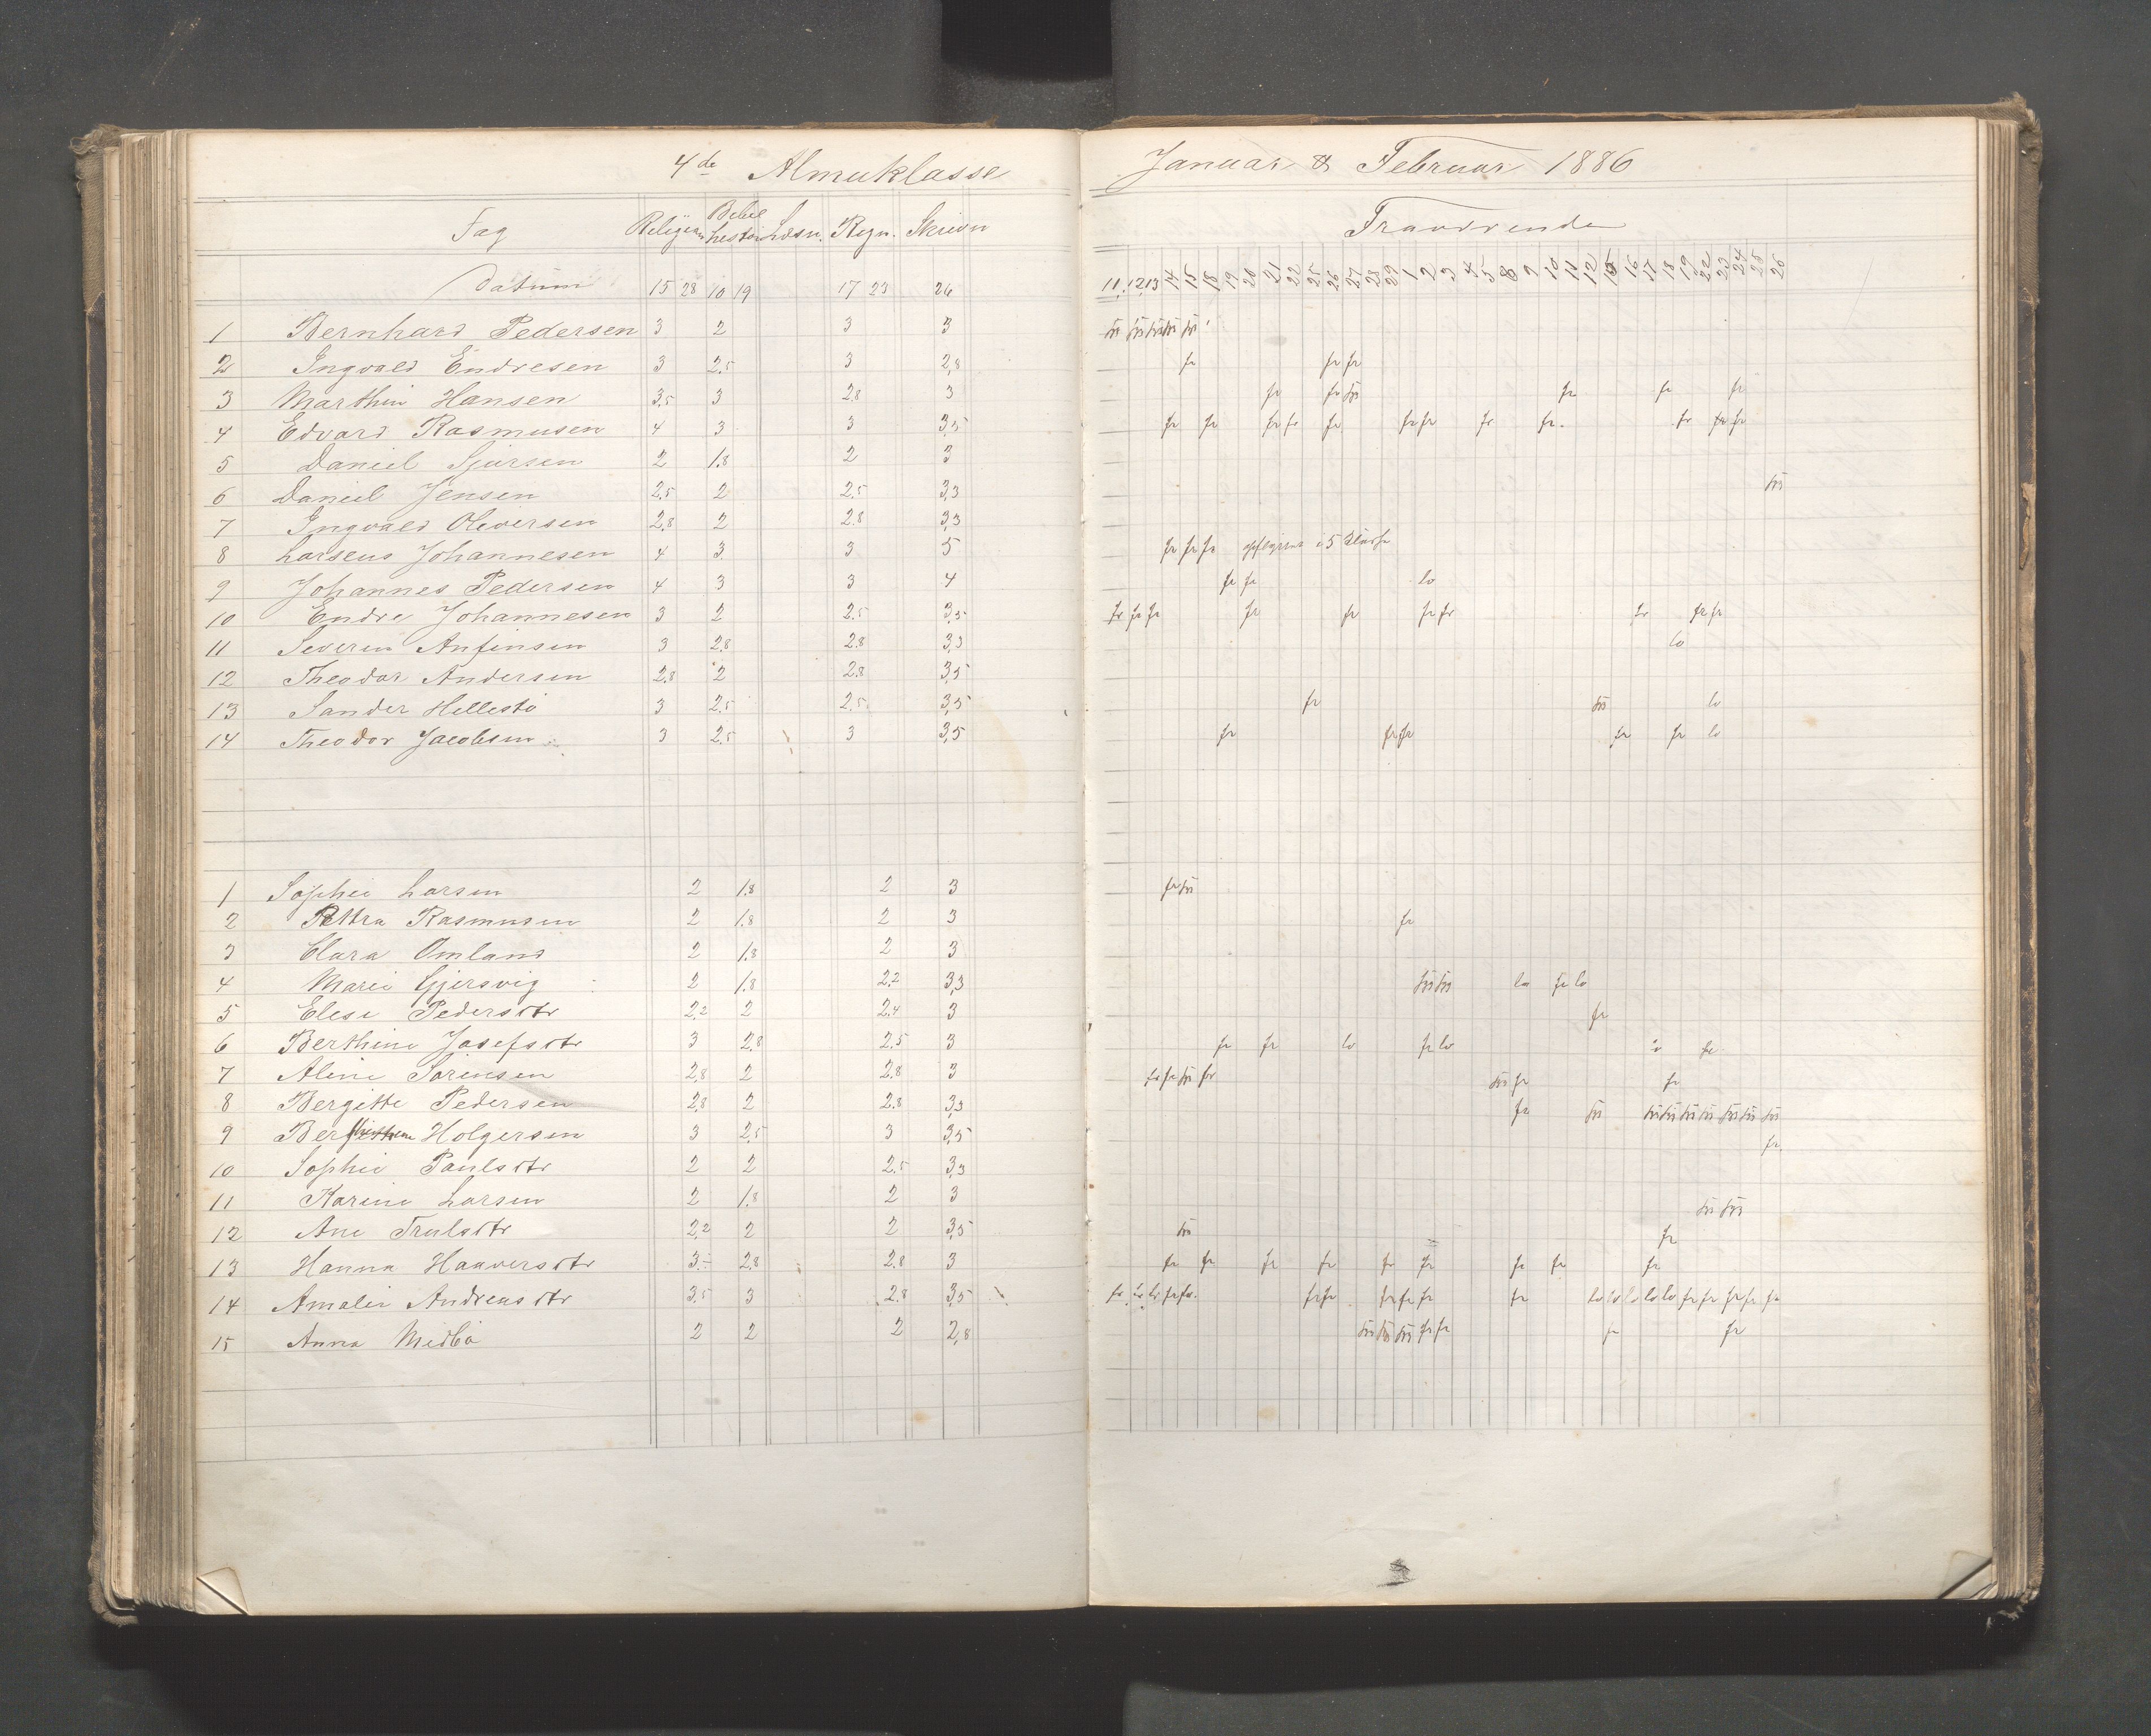 4de Almuklasse
Fag Religion Bibelhestori Læsn. Regn. Skrivn
Datum 15 28 10 19 17 23 26
1 Bernhard Pedersen 3 2 3 3
2 Ingvald Endresen 3 2,5 3 2,8
3 Marthin Hansen 3,5 3 2,8 3
4 Edvard Rasmusen 4 3 3 3,5
5 Daniel Sjursen 2 1,8 2 3
6 Daniel Jensen 2,5 2 2,5 3,3
7 Ingvald Oliversen 2,8 2 2,8 3,3
8 Larseus Johannesen 4 3 3 5
9 Johannes Pedersen 4 3 3 4
10 Endre Johannesen 3 2 2,5 3,5
11 Severin Anfinsen 3 2,8 2,8 3,3
12 Theodor Andersen 2,8 2 2,8 3,5
13 Sander Hellestö 3 2,5 2,5 3,5
14 Theodor Jacobsen 3 2,5 3 3,5
1 Sophie Larsen 2 1,8 2 3
2 Pettra Rasmusen 2 1,8 2 3
3 Clara Omland 2 1,8 2 3
4 Marie Gjersvig 2 1,8 2,2 3,3
5 Elese Pedersdtr 2,2 2 2,4 3
6 Berthine Josefsdtr 3 2,8 2,5 3
7 Aline Sörensen 2,8 2 2,8 3
8 Bergitte Pedersen 2,8 2 2,8 3,3
9 Holgersen 3 2,5 3 3,5
10 Sophie Paulsdtr 2 2 2,5 3,3
11 Karine Larsen 2 1,8 2 3
12 Ane Trulsdtr 2,2 2 2 3,5
13 Hanna Haaversdtr 3,5 2,8 2,8 3
14 Amalie Andreasdtr 3,5 3 2,8 3,5
15 Anna Midbö 2 2 2 2,8
Januar & Februar 1886
Fraværende
11 12 13 14 15 18 19 20 21 22 25 26 27 28 29 1 2 3 4 5 8 9 10 11 12 15 16 17 18 19 22 23 24 25 26
syg syg syg syg syg
fr fr fr
fr fr syg fr fr fr
fr fr fr fr fr fr fr fr fr fr fr fr
syg
fr fr fr opflyttet i 5 Klasse
fr fr lo
fr fr fr fr fr fr fr fr fr fr
lo
fr syg lo
fr fr fr fr fr lo
fr syg
fr
syg syg lo fr lo
fr
fr fr lo fr lo
syg fr fr
fr syg syg syg syg syg syg syg syg
fr
syg syg
syg fr
fr fr fr fr fr fr fr fr fr
fr lo lo fr fr fr fr fr fr fr fr lo lo lo lo lo fr fr fr fr fr
syg syg syg fr fr fr fr